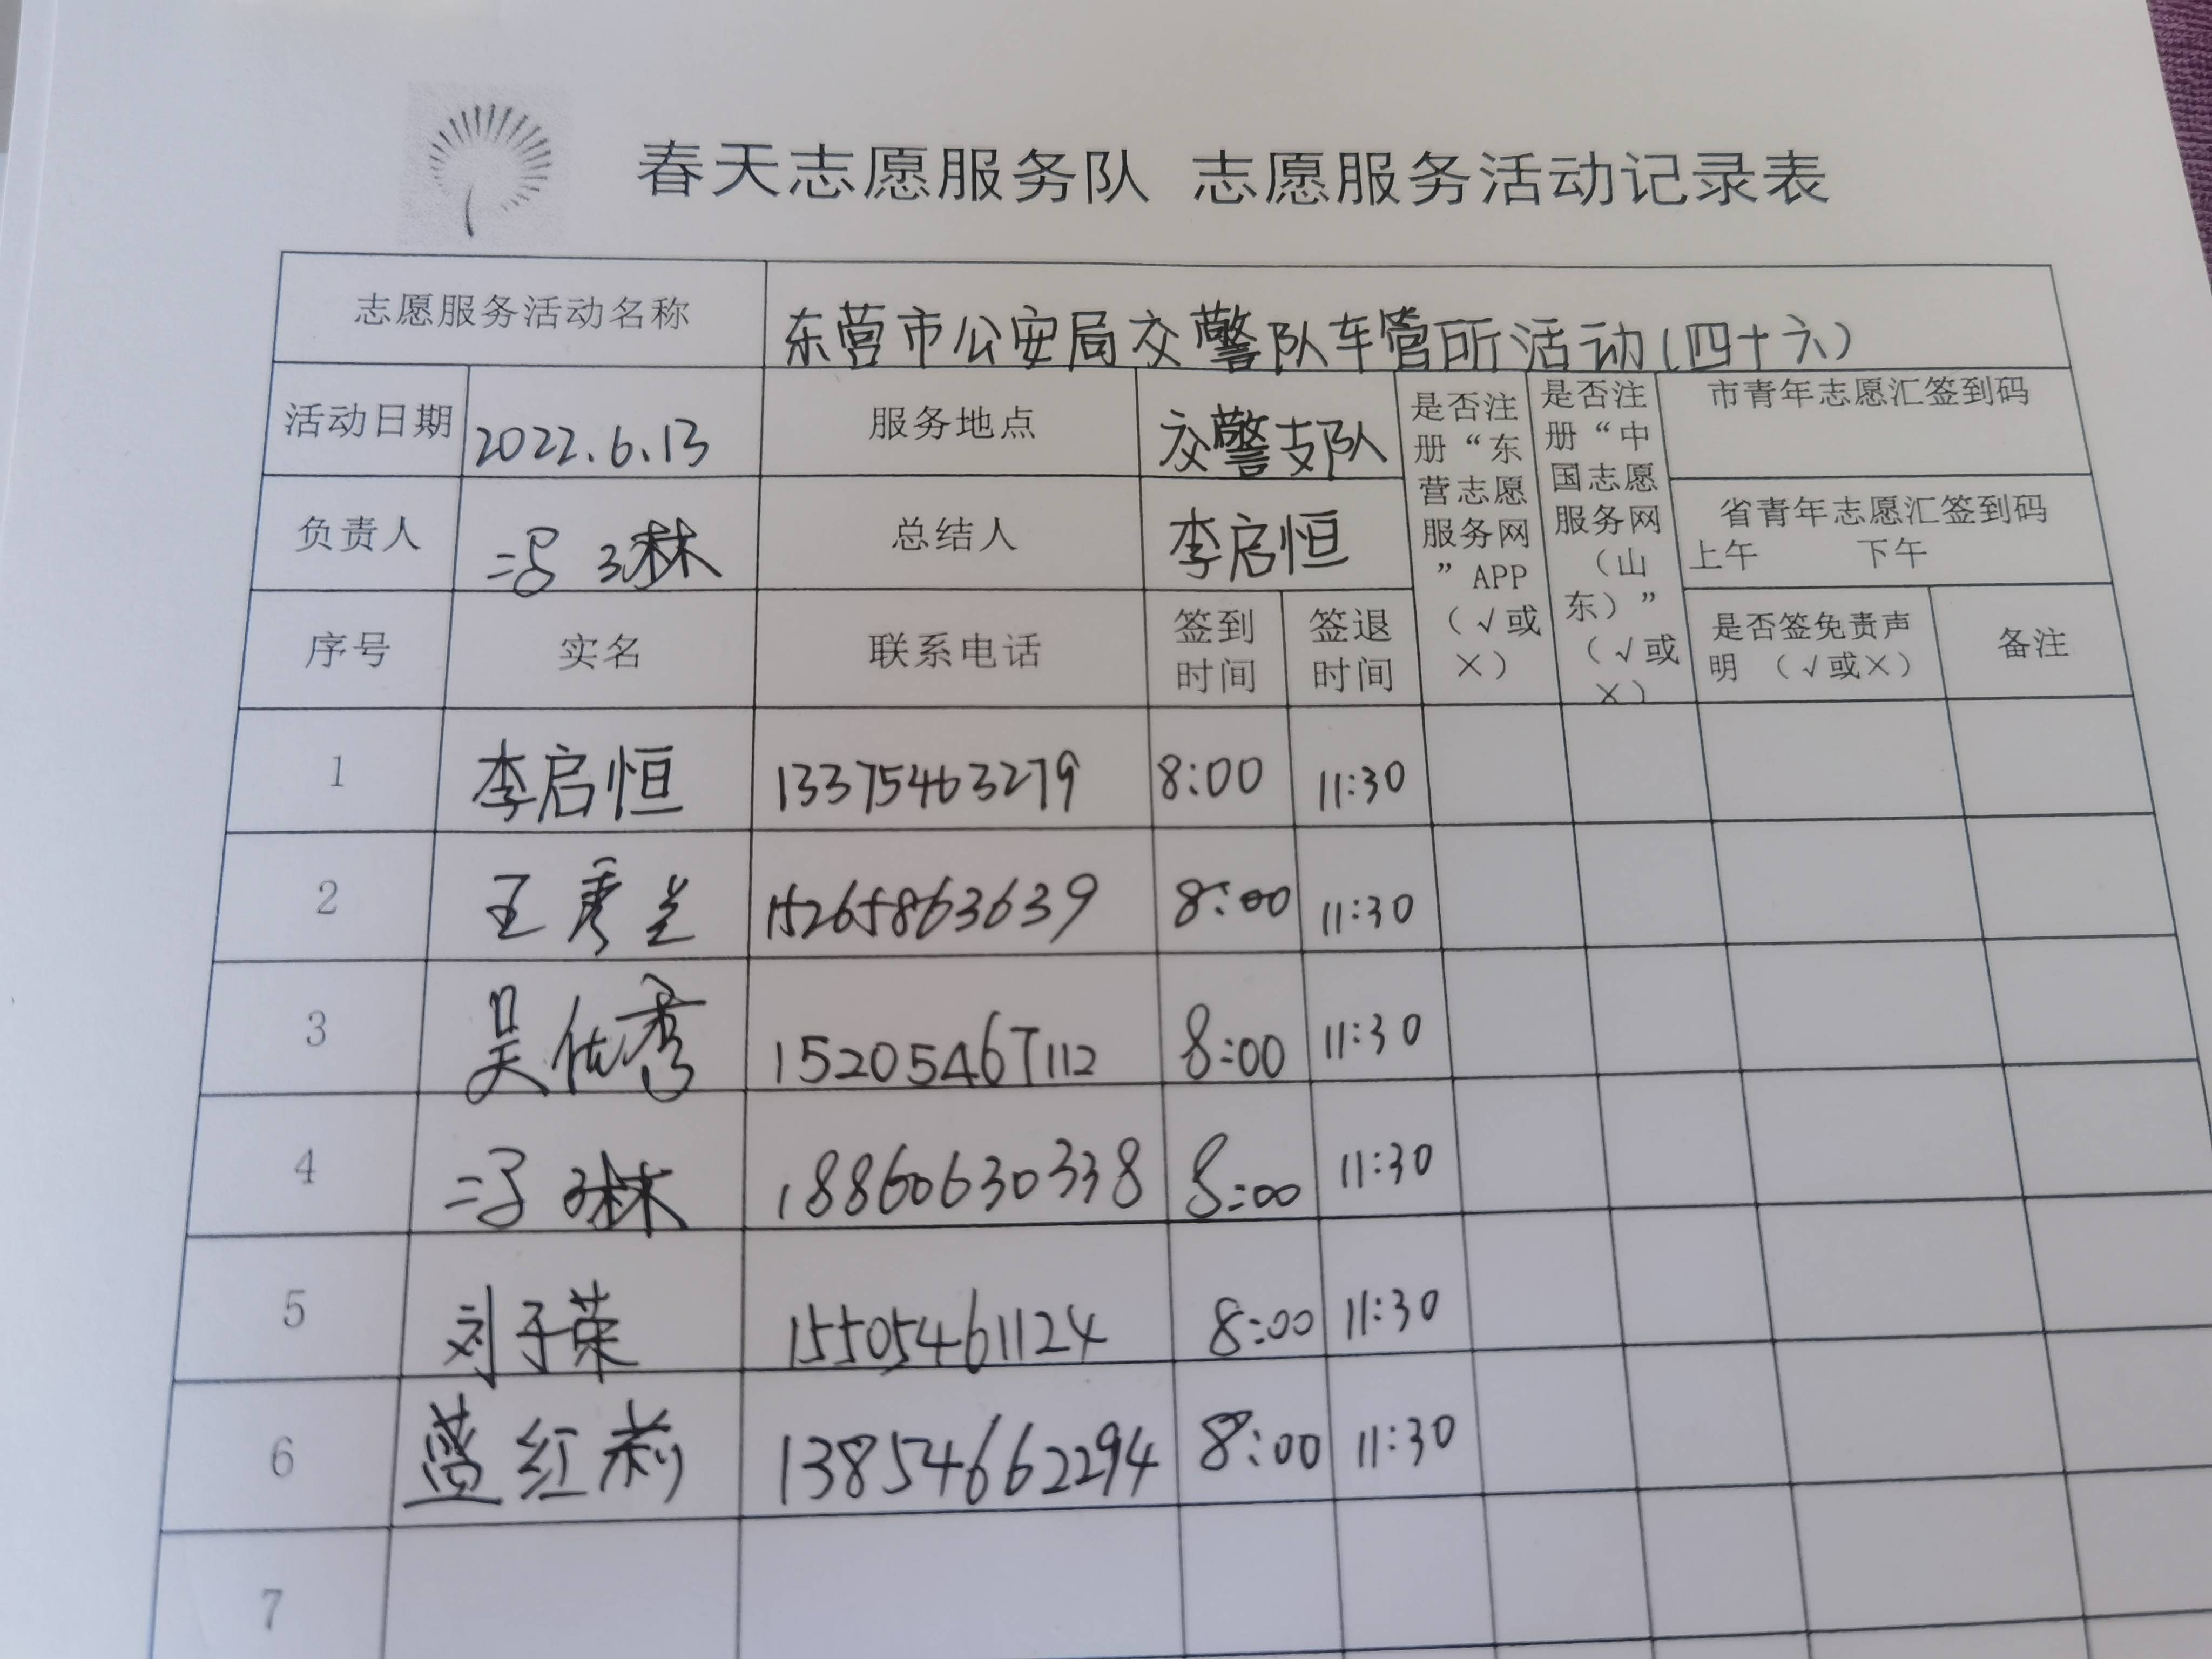 春天志愿服务队 志愿服务活动记录表
志愿服务活动名称 东营市公安局交警队车管所活动(四十六)
活动日期 2022.6.13 服务地点 交警支队 是否注册“东营志愿服务网”APP（√或×） 是否注册“中国志愿服务网（山东）”（√或×） 市青年志愿汇签到码
负责人 冯琳 总结人 李启恒 省青年志愿汇签到码
上午 下午
序号 实名 联系电话 签到时间 签退时间 是否签免责声明（√或×） 备注
1 李启恒 13375463279 8:00 11:30
2 王秀兰 15265863639 8:00 11:30
3 吴优秀 15205467112 8:00 11:30
4 冯琳 18860630338 8:00 11:30
5 刘子荣 15505461124 8:00 11:30
6 蓝红莉 13854662294 8:00 11:30
7